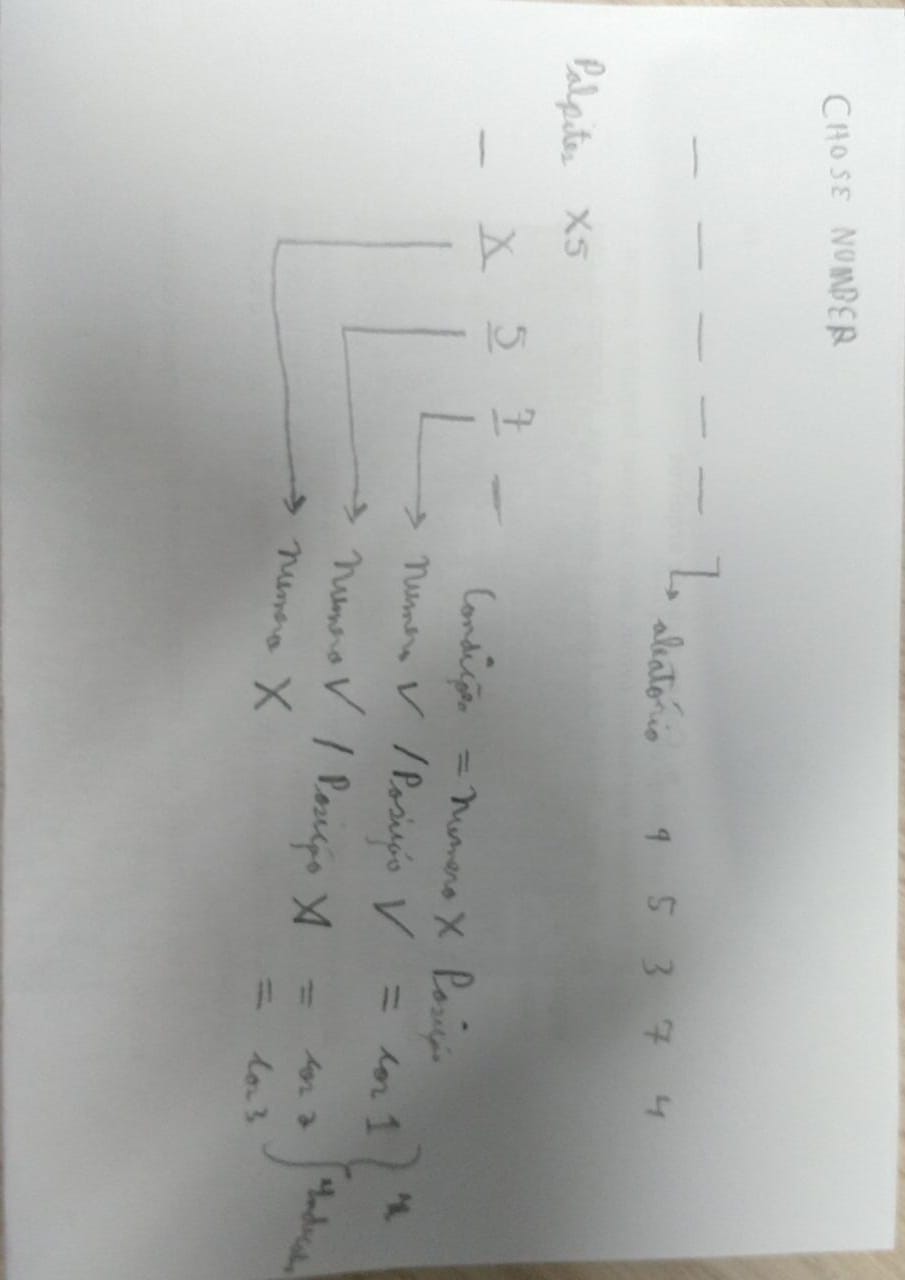 CHOSE NUMBER
_ _ _ _ _ ↳ aleatório 9 5 3 7 4
Palpites X5
_ X 5 7 _ Condição = numero X Posição
→ numero V / Posição V = cor 1
→ numero V / Posição X = cor 2
→ numero X = cor 3